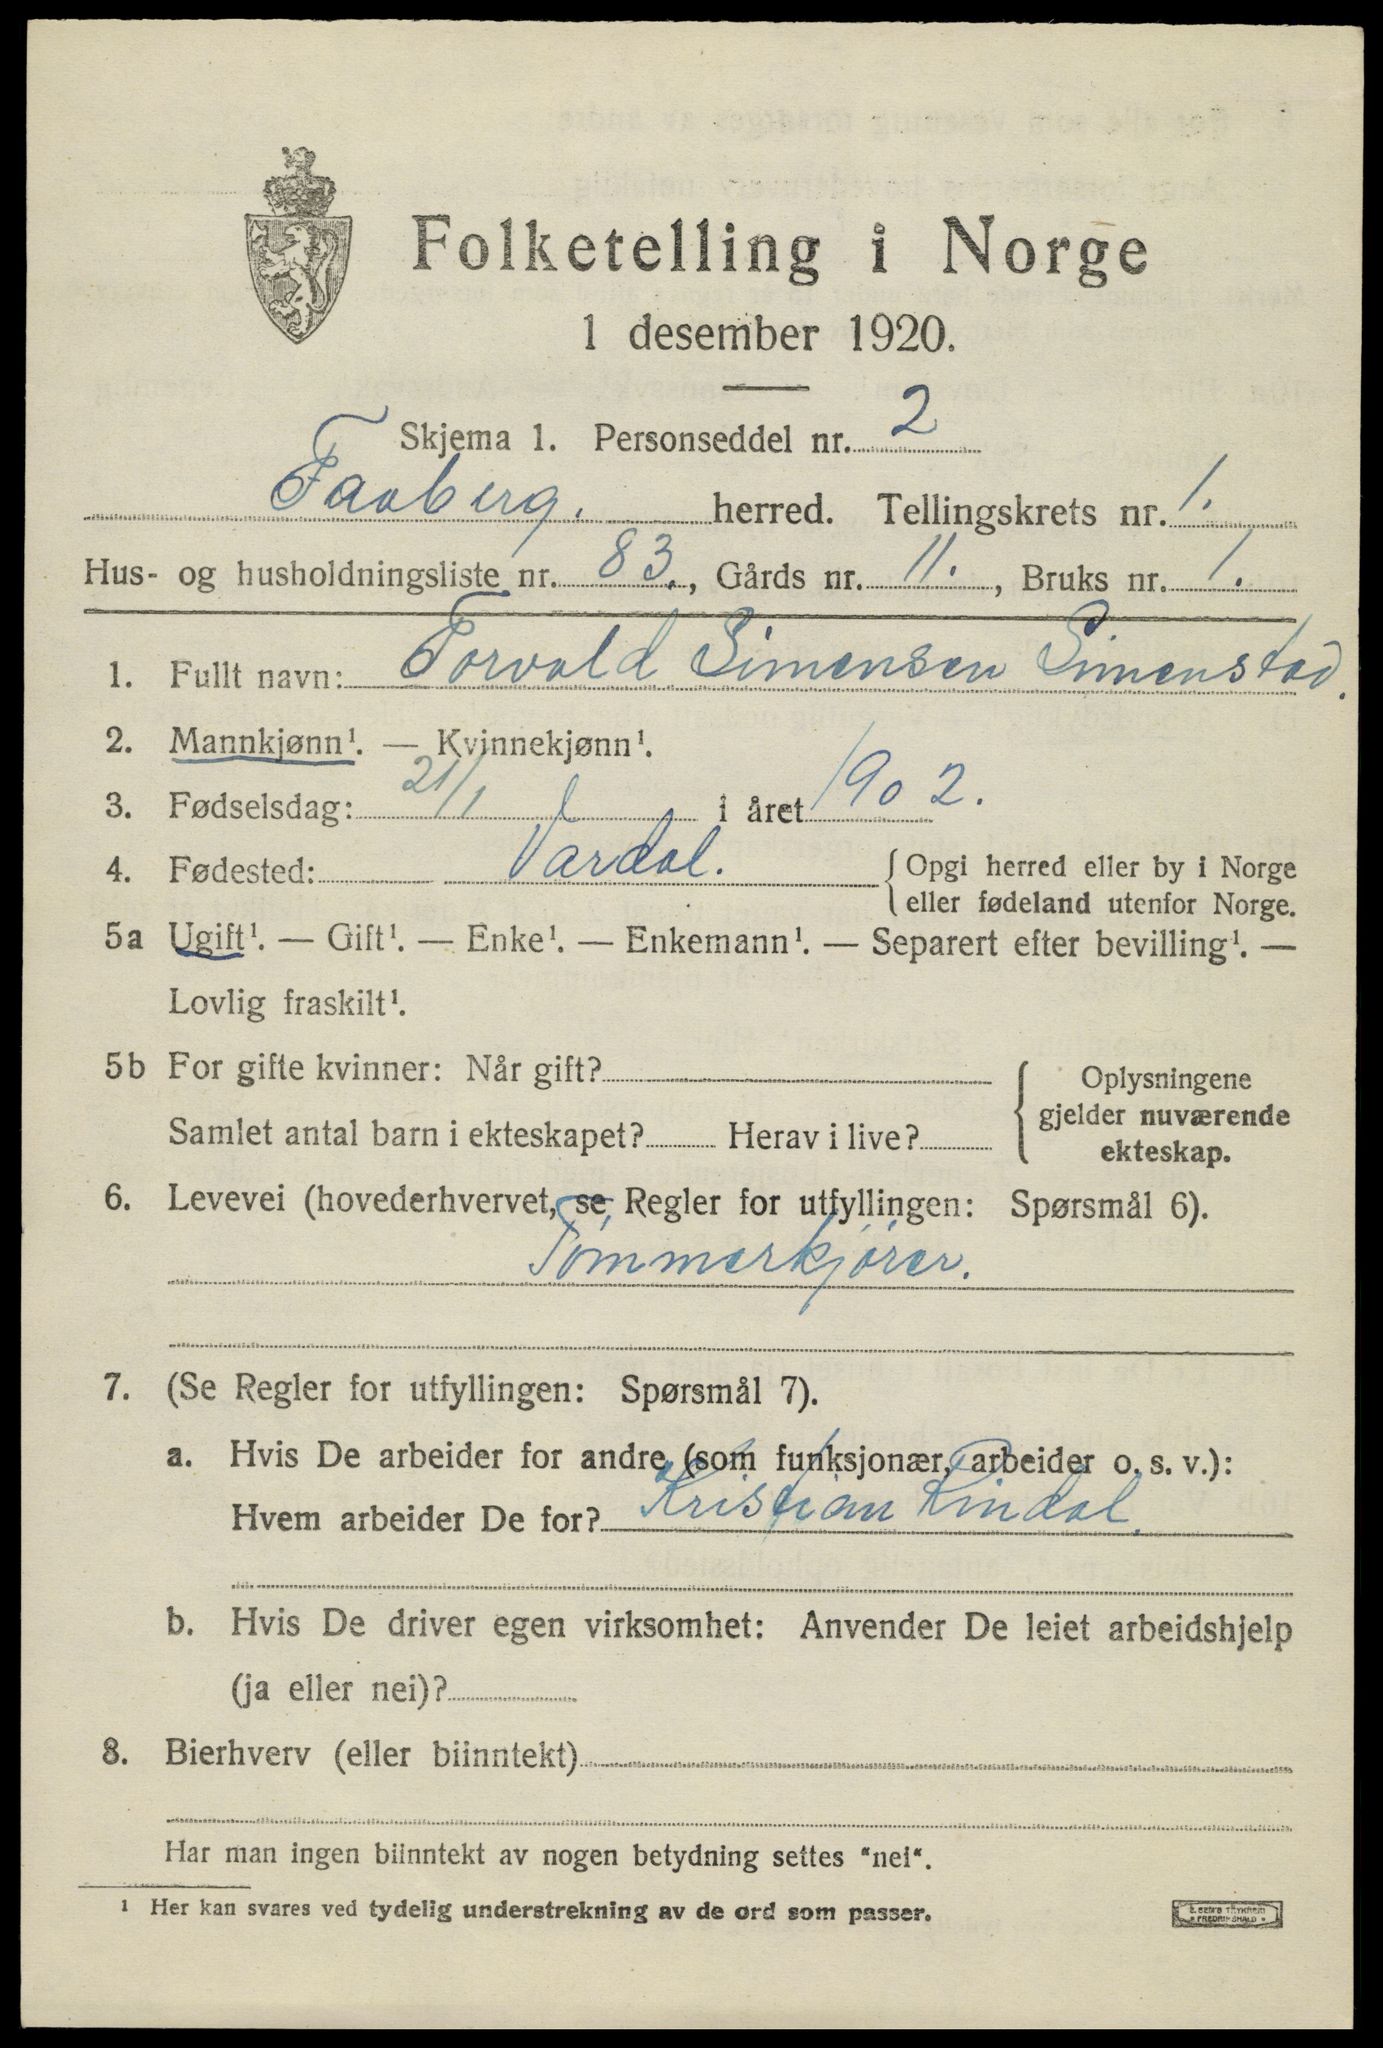 Folketelling i Norge
1 desember 1920.
Skjema 1. Personseddel nr. 2
Faaberg. herred. Tellingskrets nr. 1.
Hus- og husholdningsliste nr. 83., Gårds nr. 11., Bruks nr. 1.
1. Fullt navn: Torvald Simensen Simenstad.
2. Mannkjønn¹. — Kvinnekjønn¹.
3. Fødselsdag: 21/1 i året 1902.
4. Fødested: Vardal. { Opgi herred eller by i Norge
eller fødeland utenfor Norge.
5a Ugift¹. — Gift¹. — Enke¹. — Enkemann¹. — Separert efter bevilling¹. —
Lovlig fraskilt¹.
5b For gifte kvinner: Når gift?
Samlet antal barn i ekteskapet? Herav i live?
Oplysningene
gjelder nuværende
ekteskap.
6. Levevei (hovederhvervet, se Regler for utfyllingen: Spørsmål 6).
Tømmerkjører.
7. (Se Regler for utfyllingen: Spørsmål 7).
a. Hvis De arbeider for andre (som funksjonær, arbeider o. s. v.):
Hvem arbeider De for? Kristian Rindal.
b. Hvis De driver egen virksomhet: Anvender De leiet arbeidshjelp
(ja eller nei)?
8. Bierhverv (eller biinntekt)
Har man ingen biinntekt av nogen betydning settes "nei".
1 Her kan svares ved tydelig understrekning av de ord som passer.